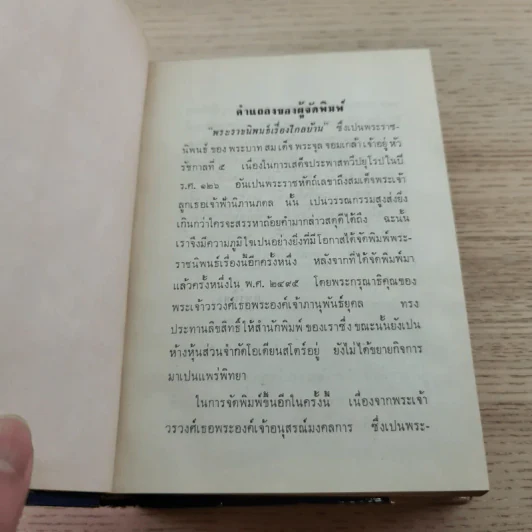 คำแถลงของผู้จัดพิมพ์
"พระราชนิพนธ์เรื่องไกลบ้าน" ซึ่งเปนพระราช-
นิพนธ์ ของ พระบาท สม เด็จ พระจุล จอมเกล้า เจ้าอยู่ หัว
รัชกาลที่ ๕ เนื่องในการเสด็จประพาสทวีปยุโรปในปี
ร.ศ. ๑๒๖ อันเปนพระราชหัตถ์เลขาถึงสมเด็จพระเจ้า
ลูกเธอเจ้าฟ้านิภานภดล นั้น เปนวรรณกรรมสูงส่งยิ่ง
เกินกว่าใครจะสรรหาถ้อยคำมากล่าวสดุดีได้ถึง ฉะนั้น
เราจึงมีความภูมิใจเปนอย่างยิ่งที่มีโอกาสได้จัดพิมพ์พระ-
ราชนิพนธ์เรื่องนี้อีกครั้งหนึ่ง หลังจากที่ได้จัดพิมพ์มา
แล้วครั้งหนึ่งใน พ.ศ. ๒๔๙๕ โดยพระกรุณาธิคุณของ
พระเจ้าวรวงศ์เธอพระองค์เจ้าภานุพันธ์ยุคล ทรง
ประทานลิขสิทธิ์ให้สำนักพิมพ์ ของเราซึ่ง ขณะนั้นยังเปน
ห้างหุ้นส่วนจำกัดโอเดียนสโตร์อยู่ ยังไม่ได้ขยายกิจการ
มาเปนแพร่พิทยา
ในการจัดพิมพ์ขึ้นอีกในครั้งนี้ เนื่องจากพระเจ้า
วรวงศ์เธอพระองค์เจ้าอนุสรณ์มงคลการ ซึ่งเปนพระ-